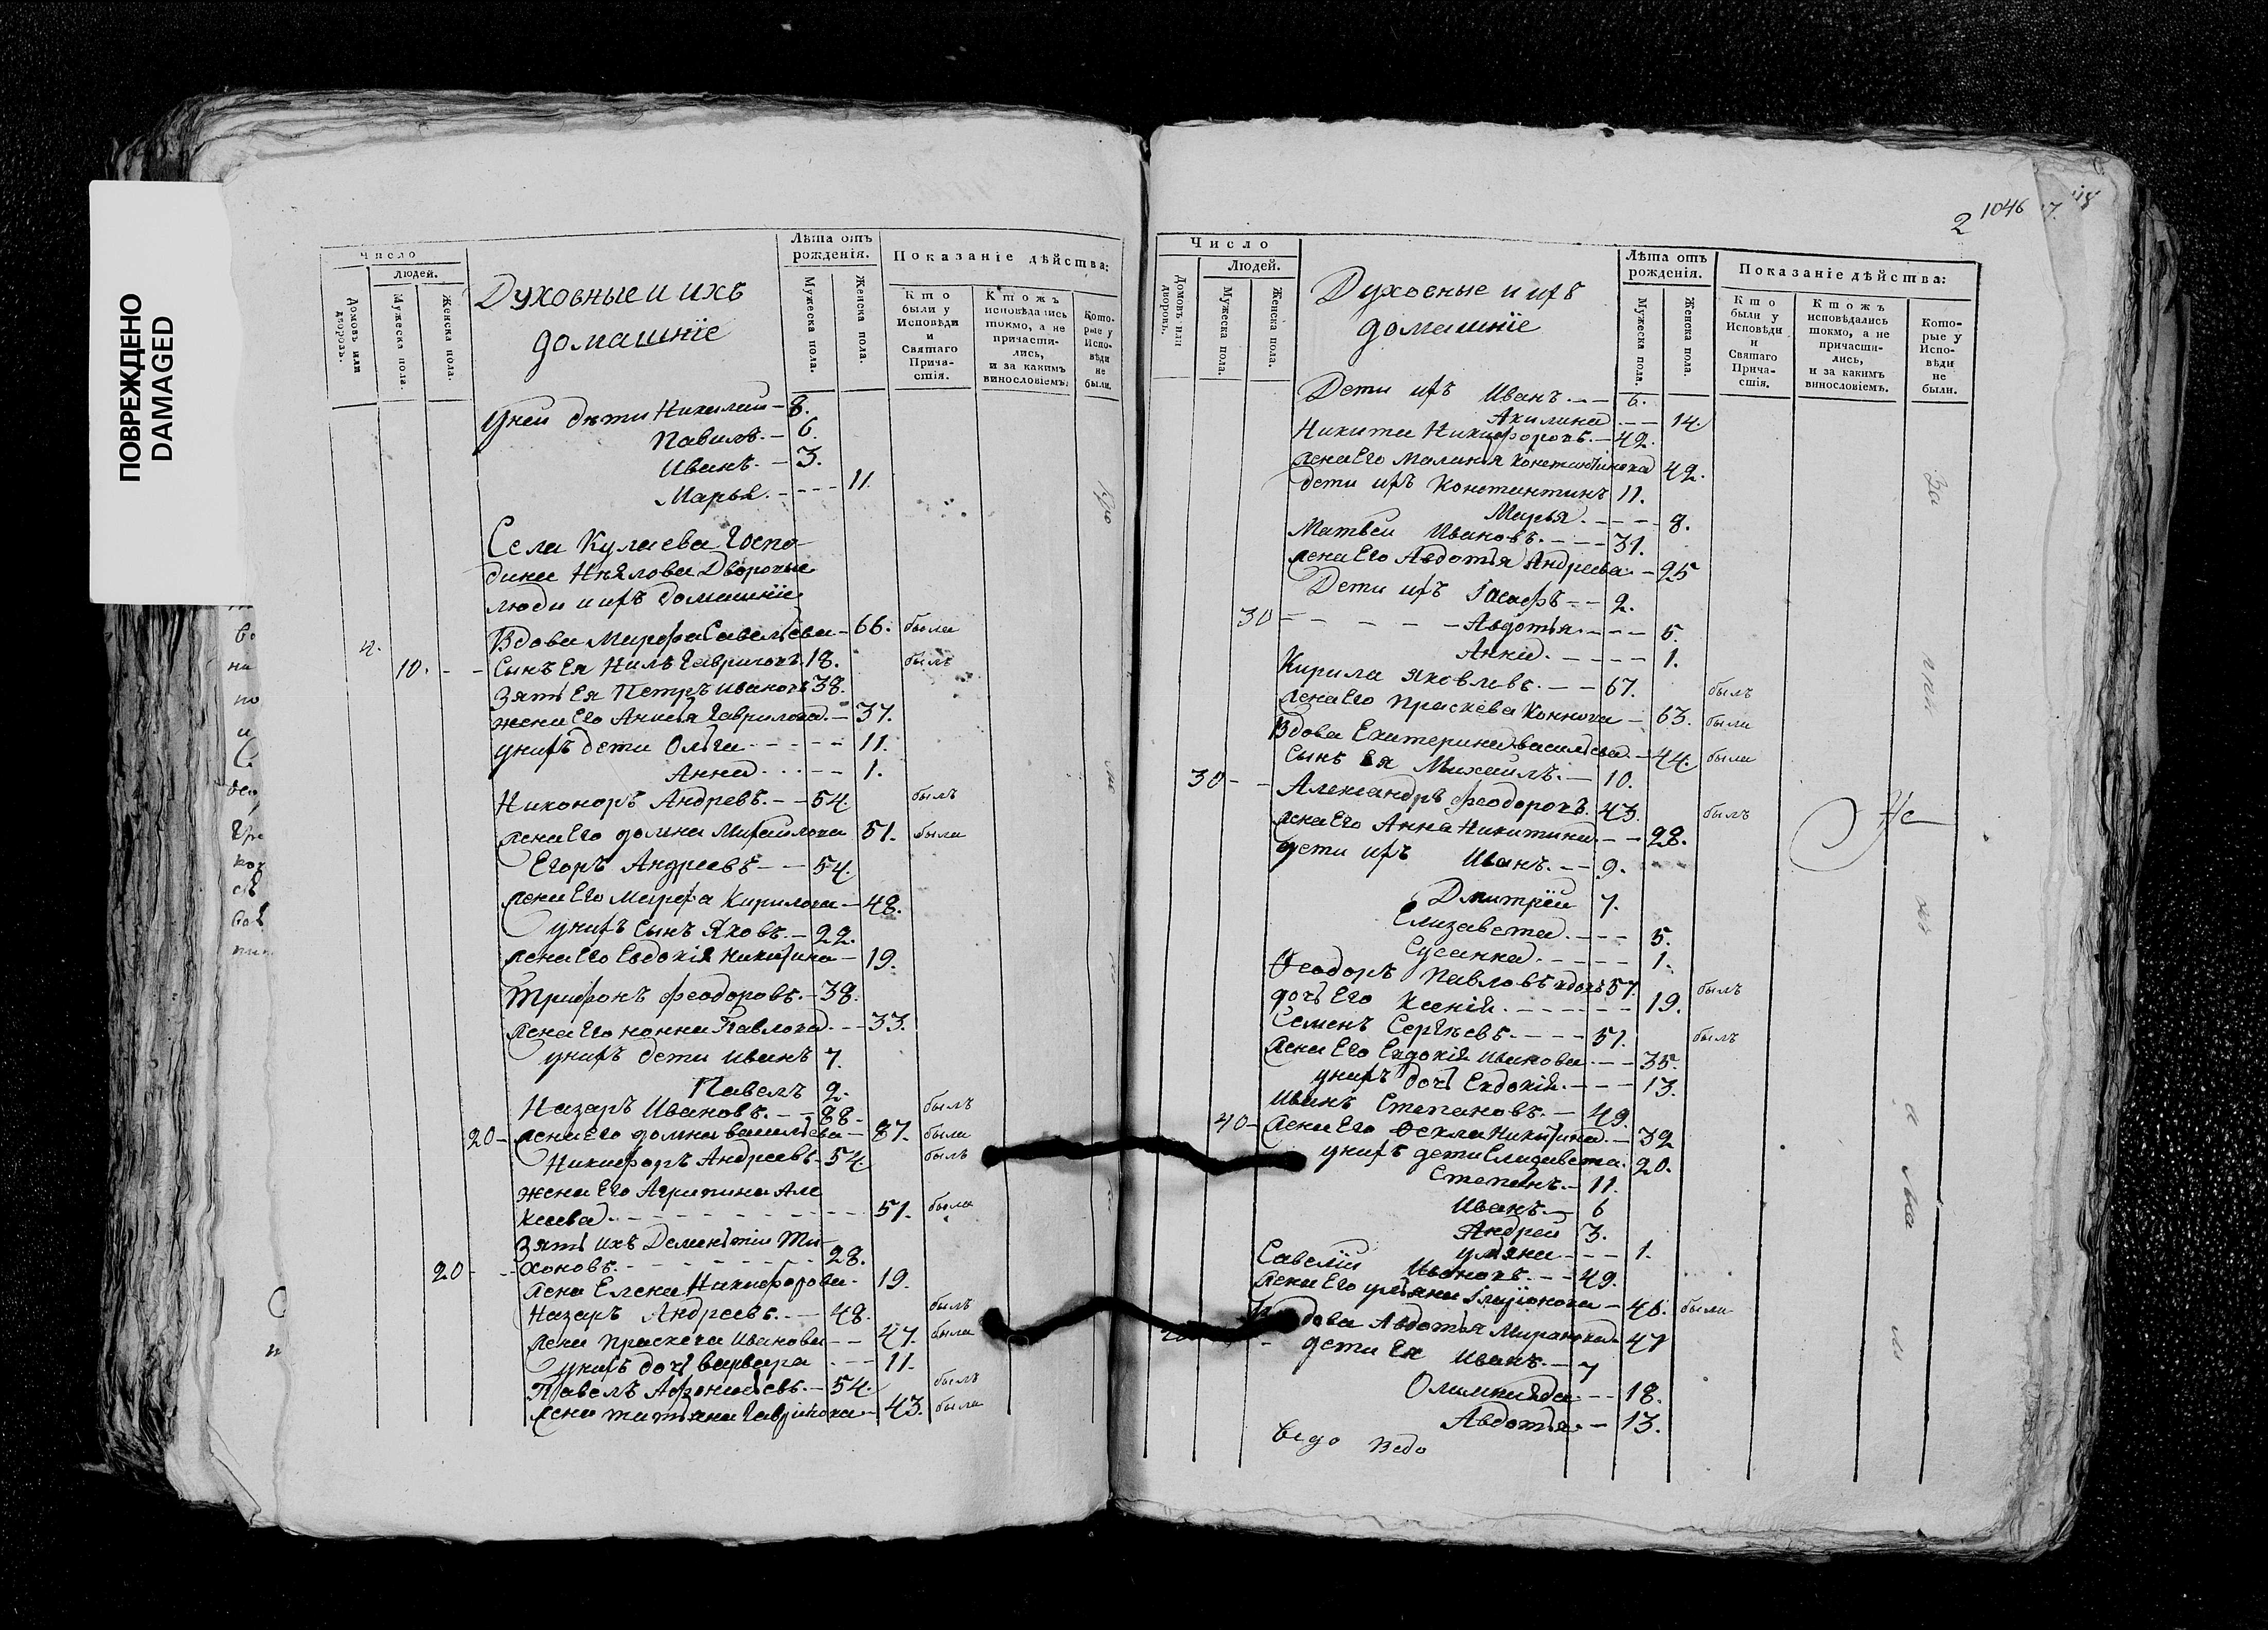 ПОВРЕЖДЕНО
DAMAGED
Число
Людей.
Домовъ или дворовъ.
Мужеска пола.
Женска пола.
Духовные и ихъ
домашнїе
Лѣта отъ рожденія.
Мужеска пола.
Женска пола.
Показаніе дѣйства:
Кто были у Исповѣди и Святаго Причастія.
Ктожъ исповѣдались токмо, а не причастились, и за какимъ винословіемъ.
Которые у Исповѣди не были.
уней дѣти Николай - 8.
Павилъ. - 6.
Иванъ. - 3.
Марья. - - - - 11.
Села Кулаева Госпо-
дина Нѣялова Дворовые
люди и ихъ домашнїе
4. Вдова Марфа Савелїева - 66. была
10. - - Сынъ Ея Нилъ Гавриловъ 18. былъ
Зять Ея Петръ Ивановъ 38.
жена Его Анисїя Гаврилова. - 37.
унихъ дети Ольга - - - - - 11.
Анна - - - - 1.
Никоноръ Андревъ. - - 54. былъ
жена Его домна Михайлова 51. была
Егоръ Андреевъ - - 54.
жена Его Марфа Кирилова - 48.
унихъ Сынъ Яковъ. - 22.
жена Его Евдокія Никитина - 19.
Трифонъ Феодоровъ. - 38.
жена Его нонна Павлова - - - 33.
унихъ дети Иванъ 7.
Павелъ 2.
Назаръ Ивановъ. - - 88 - былъ
20 - жена Его домна василїева - 87. была
Никифоръ Андреевъ - 54. былъ
жена Его Агрипина Але
ксеева - - - - - - 51. была
Зять ихъ Деменїтїй Ти-
20 - - хоновъ. - - - - - - 28.
жена Елена Никифорова - 19.
Назаръ Андреевъ. - - 48. былъ
жена праскева Иванова - - 47. была
унихъ дочь варвара - - - 11.
Павелъ Афонасїевъ. - 54. былъ
жена татїяна Гаврилова - 43. была
2 1046
Число
Людей.
Домовъ или дворовъ.
Мужеска пола.
Женска пола.
Духовные и ихъ
домашнїе
Лѣта отъ рожденія.
Мужеска пола.
Женска пола.
Показаніе дѣйства:
Кто были у Исповѣди и Святаго Причастія.
Ктожъ исповѣдались токмо, а не причастились, и за какимъ винословіемъ.
Которые у Исповѣди не были.
Дети ихъ Иванъ. - - 6.
Акилина - - - 14.
Никита Никифоровъ. - 42.
жена Его Маланїя Константинова 42.
дети ихъ Константинъ 11.
Марья. - - - - 8.
Матвей Ивановъ. - - - 31.
жена Его Авдотїя Андреева - 25
Дети ихъ Іоасафъ - - 2.
30 - - - - - Авдотья. - - - 5.
Анна. - - - - - 1.
Кирила Яковлевъ. - - 67. былъ
жена Его праскева Коннова - 63. была
Вдова Екатерина василїева - 44. была
Сынъ Ея Михаилъ. - 10.
30 - - Александръ феодоровъ. 43. былъ
жена Его Анна Никитина - - 28.
дети ихъ Иванъ. - - 9.
Дмитрїй 7.
Елизавета. - - - 5.
Сусанна. - - - - - 1.
Феодоръ Павловъ вдовъ 57. былъ
дочь Его Ксенїя. - - - - - - 19.
Семенъ Сергѣевъ. - - - - 51. былъ
жена Его Евдокїя Иванова - - - 35.
унихъ дочь Евдокїя. - - - 13.
Иванъ Степановъ. - 49.
40 - жена Его Ѳекла Никитина. - 32
унихъ дети Елизавета. 20.
Степанъ. - 11.
Иванъ. - 6
Андрей 3.
уляна - - - 1.
Савелїй Ивановъ. - - - 49.
жена Его улїяна Іларїонова - 46. была
Вдова Авдотья Миранова - 47
дети Ея Иванъ. - 7
Олимпияда - - 18.
Авдотья - 13.